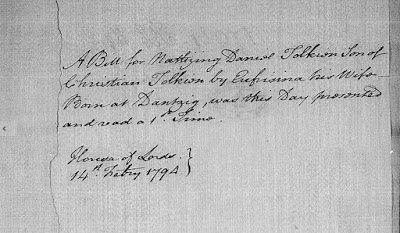 A Bill for Natlizing Daniel Tolkien Son of
Christian Tolkien by Eufrosina his Wife
Born at Dantzig, was this Day presented
and read a 1st Time.
House of Lords. }
14th Febry 1794 }